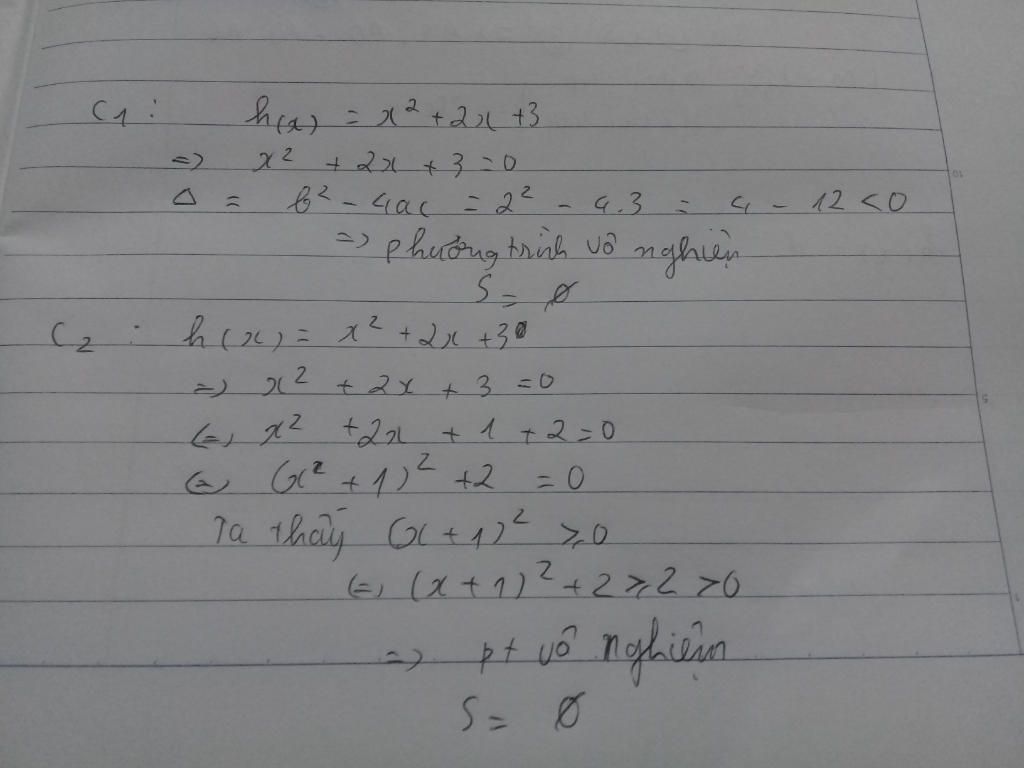 C1 : h(x) = x² + 2x + 3
=> x² + 2x + 3 = 0
Δ = b² - 4ac = 2² - 4.3 = 4 - 12 < 0
=> phương trình vô nghiệm
S = ∅
C2 : h(x) = x² + 2x + 3
=> x² + 2x + 3 = 0
<=> x² + 2x + 1 + 2 = 0
<=> (x² + 1)² + 2 = 0
Ta thấy (x + 1)² ≥ 0
<=> (x + 1)² + 2 ≥ 2 > 0
=> pt vô nghiệm
S = ∅